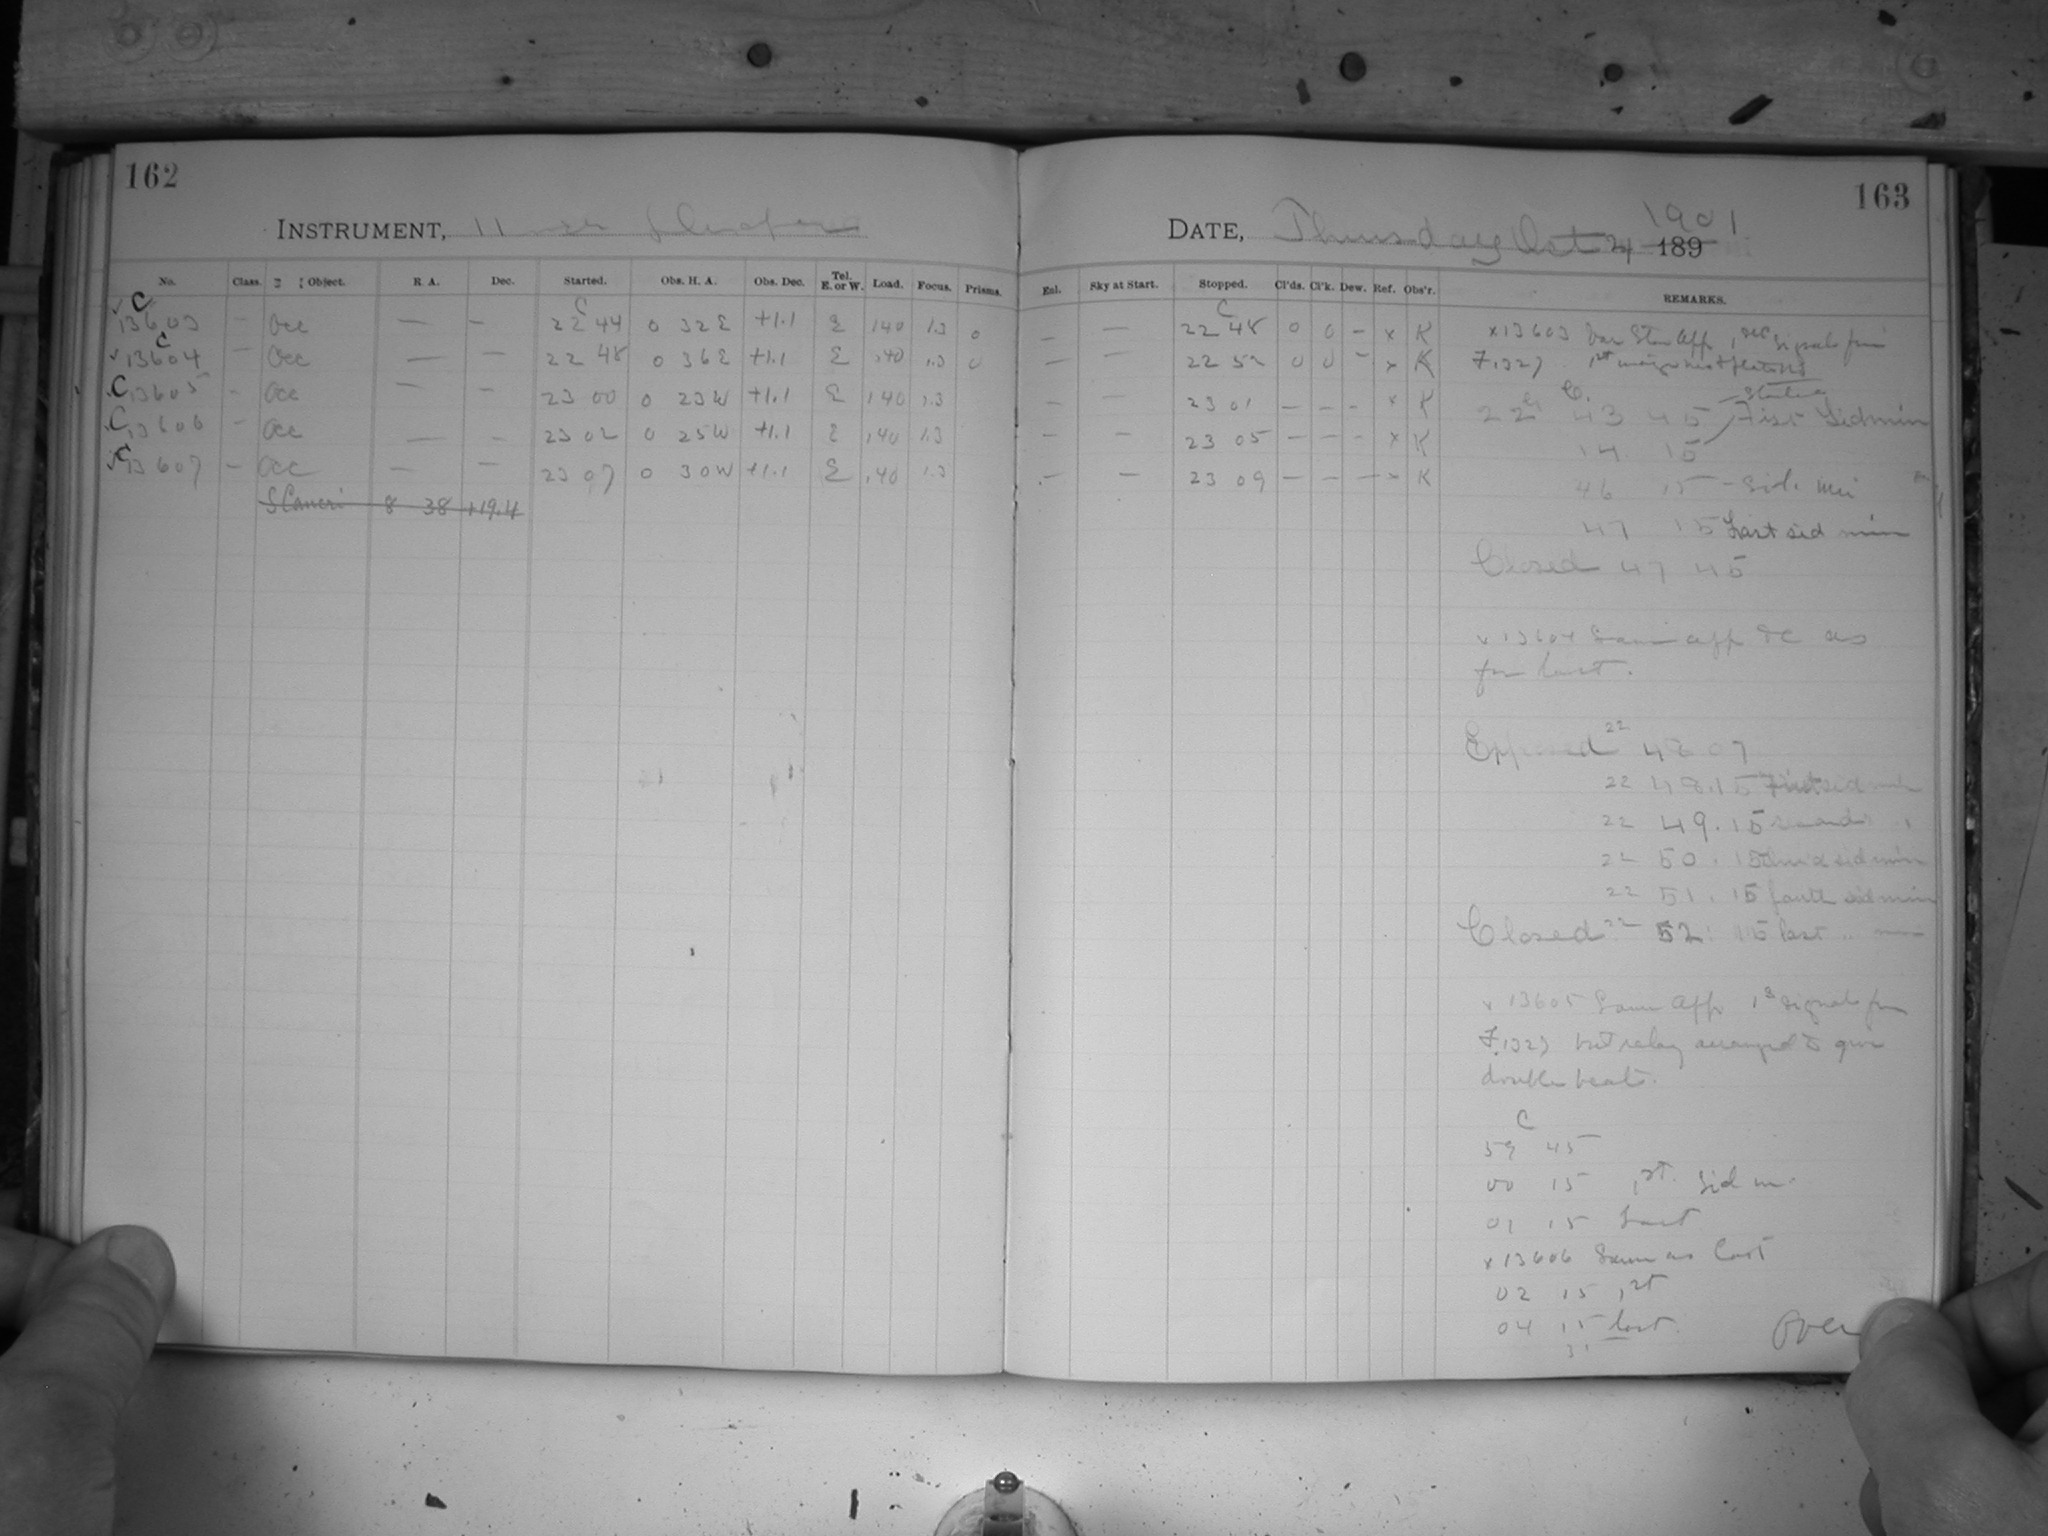 162
INSTRUMENT, 11
No. Class. Object. R. A. Dec. Started. Obs. H. A. Obs. Dec. Tel. E. or W. Load. Focus. Prisms.
C
C
13603 – Occ — — 22 44 0 32 E +1.1 E 140 1.3 0
C
13604 – Occ — — 22 48 0 36 E +1.1 E 140 1.3 0
C 13605 – Occ — – 23 00 0 23 W +1.1 E 140 1.3
C 13606 Occ — — 23 02 0 25 W +1.1 E 140 1.3
C 13607 – Occ — — 23 07 0 30 W +1.1 E 140 1.3
S Cancri 8 38 +19.4
163
1901
DATE, Thursday Oct 189
Enl. Sky at Start. Stopped. Cl'ds. Cl'k. Dew. Ref. Obs'r. REMARKS.
C
– — 22 48 0 0 – x K
— — 22 52 0 0 – x K
– — 23 01 – – – x K
– — 23 05 – – – x K
– — 23 09 – – – x K
x 13603 App signals from
C
22 43 45
First Sid min
46 15 – Sid. min
47 15 Last sid min
Closed 47 45
x 13604 Same app &c as
for last.
Exposed 22 48 07
22 48.15 First sid min
22 49.15 second
22 50.15 third sid min
22 51.15 fourth sid min
Closed 22 52 15 last
x 13605 Same App signals from
but relay arranged to give
double beats.
C
59 45
00 15 1st. Sid m.
01 15 Last
x 13606 Same as last
02 15 1st
04 15 last.
Over